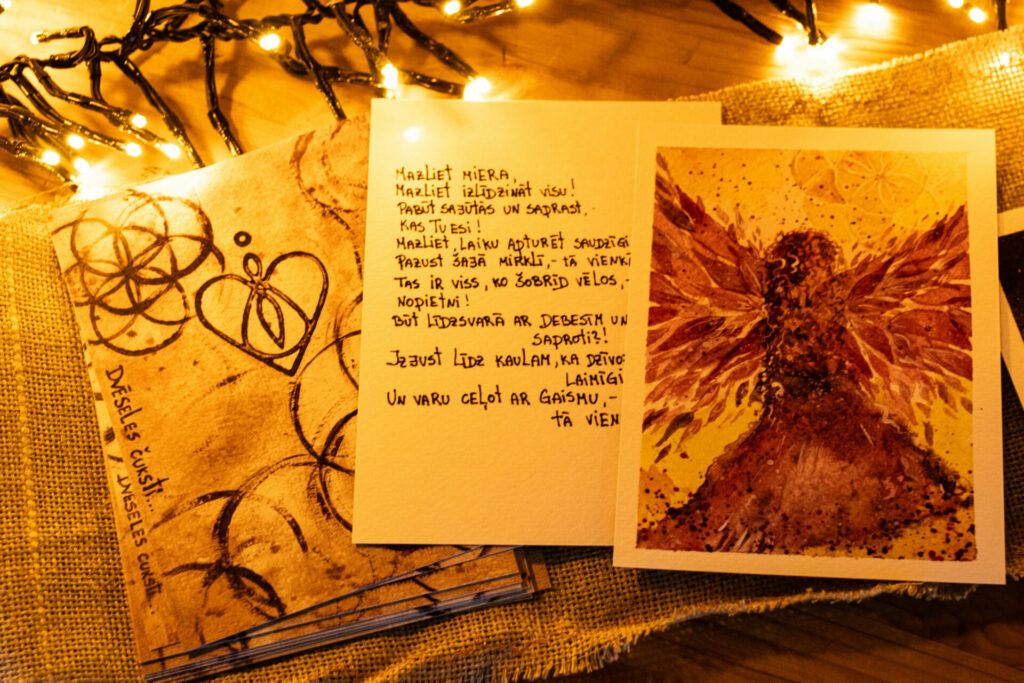 DVĒSELES ČUKSTI... / DVĒSELES ČUKSTI...
MAZLIET MIERA,
MAZLIET IZLĪDZINĀT VISU!
PABŪT SAJŪTĀS UN SAPRAST,-
KAS TU ESI!
MAZLIET, LAIKU APTURĒT SAUDZĪGI
PAZUST ŠAJĀ MIRKLĪ,- TĀ VIENKĀ
TAS IR VISS, KO ŠOBRĪD VĒLOS,-
NOPIETNI!
BŪT LĪDZSVARĀ AR DEBESĪM UN
SAPROTI?!
IZJUST LĪDZ KAULAM, KA DZĪVO
LAIMĪGI
UN VARU CEĻOT AR GAISMU,-
TĀ VIEN